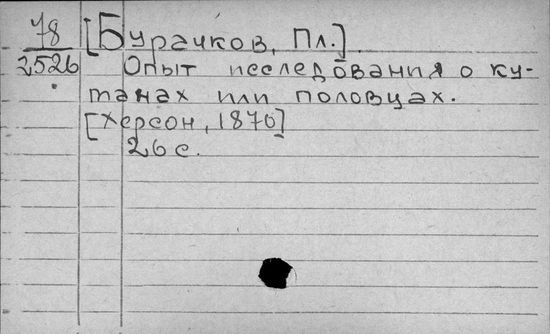 78
2526
[Бурачков, Пл.].
Опыт исследования о ку-
танах или половцах.
[Херсон, 1870]
26 с.